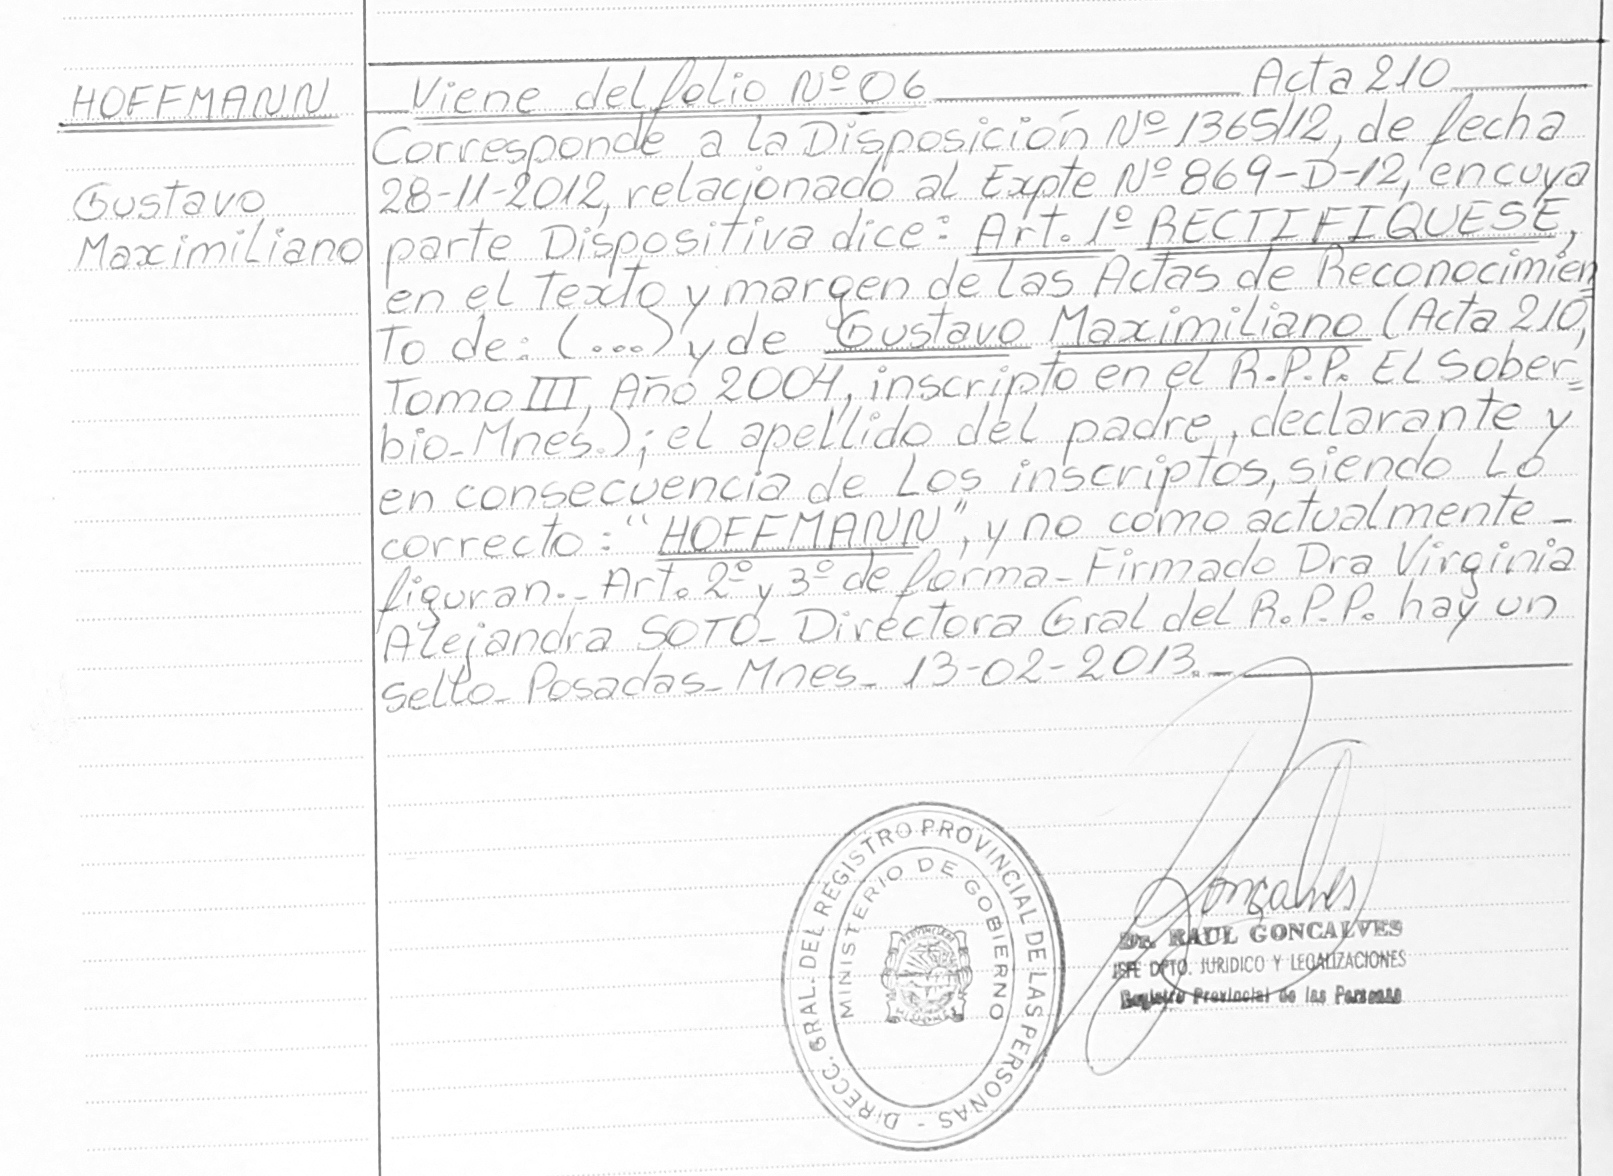 HOFFMANN
Gustavo
Maximiliano
Viene del folio Nº 06 Acta 210
Corresponde a la Disposición Nº 1365/12, de fecha
28-11-2012, relacionado al Expte Nº 869-D-12, en cuya
parte Dispositiva dice: Art. 1º RECTIFIQUESE,
en el Texto y margen de las Actas de Reconocimien
To de: (...) y de Gustavo Maximiliano (Acta 210,
Tomo III, Año 2004, inscripto en el R.P.P. El Sober=
bio-Mnes.); el apellido del padre, declarante y
en consecuencia de Los inscriptos, siendo Lo
correcto: "HOFFMANN", y no como actualmente -
figuran.- Art. 2º y 3º de forma- Firmado Dra Virginia
Alejandra SOTO- Directora Gral del R.P.P. hay un
sello- Posadas- Mnes- 13-02-2013.-
DIRECC. GRAL. DEL REGISTRO PROVINCIAL DE LAS PERSONAS -
MINISTERIO DE GOBIERNO
Goncalves
Dr. RAUL GONCALVES
JEFE DPTO. JURIDICO Y LEGALIZACIONES
Registro Provincial de las Personas